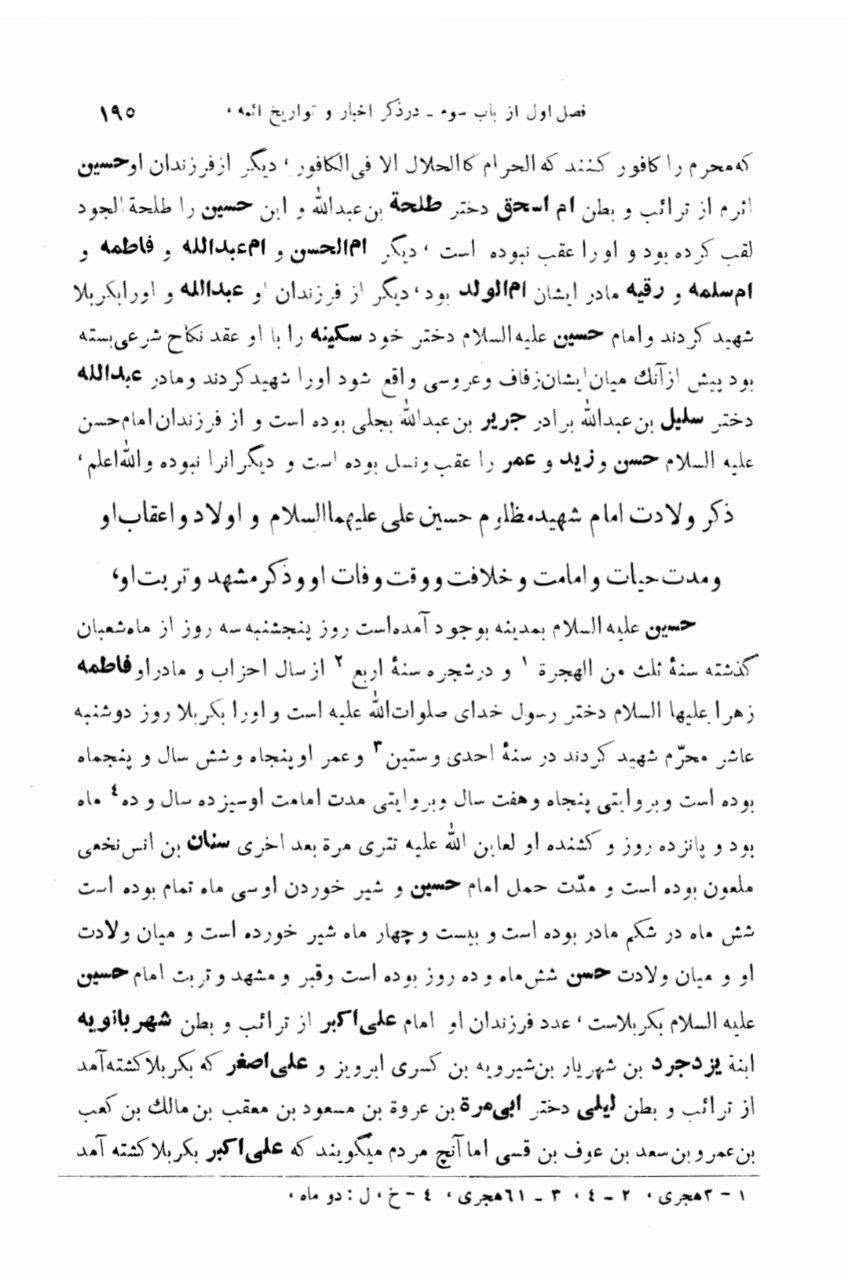 فصل اول از باب سوم ـ در ذکر اخبار و تواریخ ائمه، ۱۹۵
که محرم را کافور کنند که الحرام کالحلال الا فی الکافور، دیگر از فرزندان او حسین
اثرم از ترائب و بطن ام اسحق دختر طلحة بن عبدالله و این حسین را طلحة الجود
لقب کرده بود و او را عقب نبوده است، دیگر ام‌الحسن و ام‌عبدالله و فاطمه و
ام‌سلمه و رقیه مادر ایشان ام‌الولد بود، دیگر از فرزندان او عبدالله و او را بکربلا
شهید کردند و امام حسین علیه السلام دختر خود سکینه را با او عقد نکاح شرعی بسته
بود پیش از آنك میان ایشان زفاف و عروسی واقع شود او را شهید کردند و مادر عبدالله
دختر سلیل بن عبدالله برادر جریر بن عبدالله بجلی بوده است و از فرزندان امام حسن
علیه السلام حسن و زید و عمر را عقب و نسل بوده است و دیگرانرا نبوده والله اعلم،
ذکر ولادت امام شهید مظلوم حسین علی علیهما السلام و اولاد و اعقاب او
و مدت حیات و امامت و خلافت و وقت وفات او و ذکر مشهد و تربت او،
حسین علیه السلام بمدینه بوجود آمده است روز پنجشنبه سه روز از ماه شعبان
گذشته سنهٔ ثلث من الهجرة ۱ و در شجره سنهٔ اربع ۲ از سال احزاب و مادر او فاطمه
زهرا علیها السلام دختر رسول خدای صلوات‌الله علیه است و او را بکربلا روز دوشنبه
عاشر محرّم شهید کردند در سنهٔ احدی و ستین ۳ و عمر او پنجاه و شش سال و پنجماه
بوده است و بروایتی پنجاه و هفت سال و بروایتی مدت امامت او سیزده سال و ده ٤ ماه
بود و پانزده روز و کشنده او لعاین الله علیه تتری مرة بعد اخری سنان بن انس نخعی
ملعون بوده است و مدّت حمل امام حسین و شیر خوردن او سی ماه تمام بوده است
شش ماه در شکم مادر بوده است و بیست و چهار ماه شیر خورده است و میان ولادت
او و میان ولادت حسن شش ماه و ده روز بوده است و قبر و مشهد و تربت امام حسین
علیه السلام بکربلاست، عدد فرزندان او امام علی اکبر از ترائب و بطن شهربانویه
ابنة یزدجرد بن شهریار بن شیرویه بن کسری ابرویز و علی اصغر که بکربلا کشته آمد
از ترائب و بطن لیلی دختر ابی مرة بن عروة بن مسعود بن معقب بن مالك بن کعب
بن عمرو بن سعد بن عوف بن قسی اما آنچ مردم میگویند که علی اکبر بکربلا کشته آمد
۱ - ۳هجری، ۲ - ٤، ۳ - ٦۱هجری، ٤ - خ، ل : دو ماه،